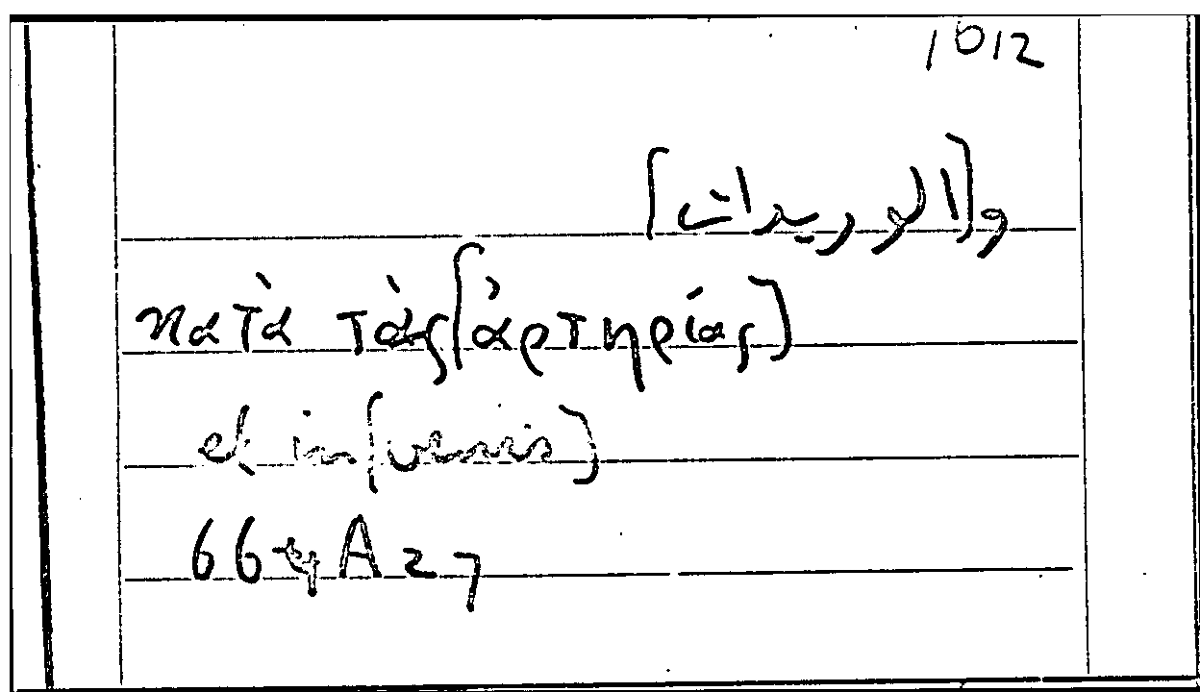 1612
و[الوريدات]
κατὰ τὰς [ἀρτηρίας]
et in [venis]
664A27